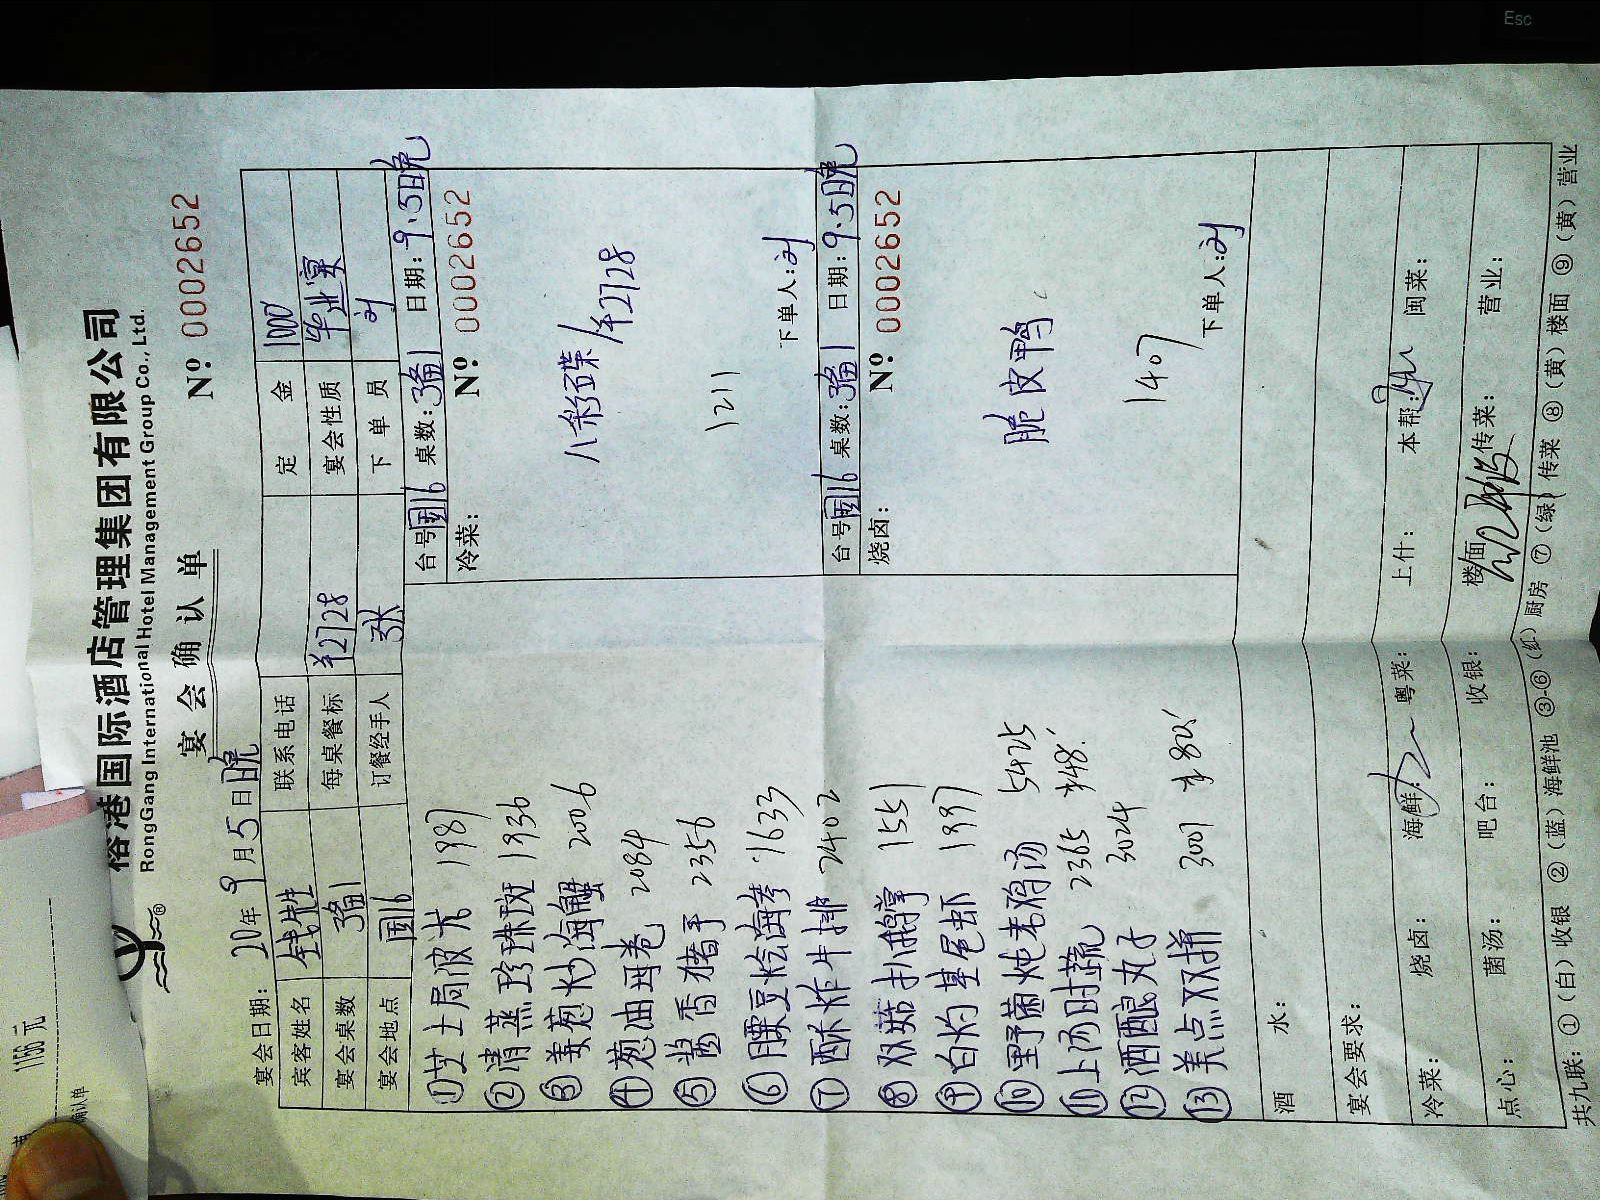 榕港国际酒店管理集团有限公司
RongGang International Hotel Management Group Co., Ltd.
宴会确认单
№ 0002652
宴会日期: 20年9月5日晚
宾客姓名 联系电话 定金 1000
宴会桌数 每桌餐标 ¥2728 宴会性质 毕业宴
宴会地点 国16 订餐经手人 张 下单员 刘
①芝士焗波龙 1987
②清蒸珍珠斑 1936
③姜葱炒海蟹 2006
④葱油珥卷 2084
⑤酱香猪手 2356
⑥腰豆烩海参 1633
⑦酥炸牛排 2402
⑧双菇扒鹅掌 1551
⑨白灼基尾虾 1997
⑩野菌炖老鸡汤 5425
⑪上汤时蔬 2365 ¥48
⑫酒酿丸子 3024
⑬美点双拼 3001
台号 国16 桌数: 日期: 9.5日晚
冷菜: № 0002652
八彩碟/¥2728
1211
下单人: 刘
台号 国16 桌数: 日期: 9.5日晚
烧卤: № 0002652
脆皮鸭
1407
下单人: 刘
酒水:
宴会要求:
冷菜: 烧卤: 海鲜: 粤菜: 上什: 本帮: 闽菜:
点心: 菌汤: 吧台: 收银: 楼面: 传菜: 营业:
共九联: ①(白)收银 ②(蓝)海鲜池 ③-⑥(红)厨房 ⑦(绿)传菜 ⑧(黄)楼面 ⑨(黄)营业
1166元
确认单
Esc